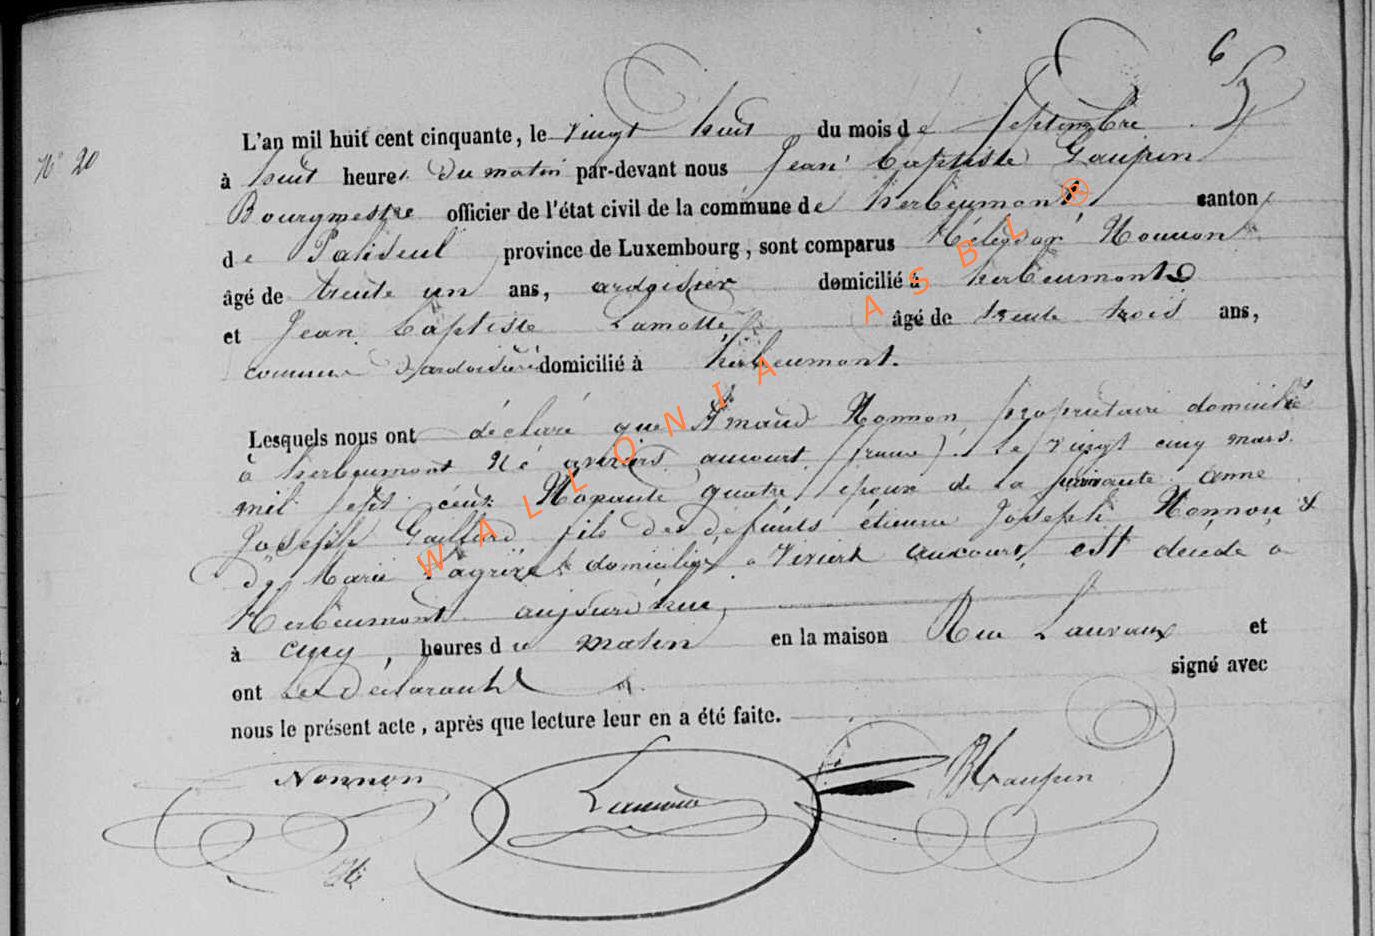 6
N° 20
L'an mil huit cent cinquante, le vingt huit du mois de Septembre
à huit heures du matin par-devant nous Jean Baptiste Gaupin
Bourgmestre officier de l'état civil de la commune de herbeumont canton
de Paliseul province de Luxembourg, sont comparus Héliodor Nonnon
âgé de trente un ans, ardoisier domicilié à herbeumont
et Jean Baptiste Lamotte âgé de trente trois ans,
d'ardoisière domicilié à herbeumont.
Lesquels nous ont déclaré que Arnaud Nonnon, propriétaire domicilié
à herbeumont Né a viviers aucourt (france) le vingt cinq mars
mil sept cent Nonante quatre époux de la Anne
Joseph Gaillard fils des défunts étienne Joseph Nonnon &
de Marie domiciliés a Viviers aucourt, est décédé a
Herbeumont aujourd'hui,
à cinq, heures du matin en la maison Rue Lauvaux et
ont les déclarants signé avec
nous le présent acte, après que lecture leur en a été faite.
Nonnon Lamotte JBGaupin
WALLONIA ASBL